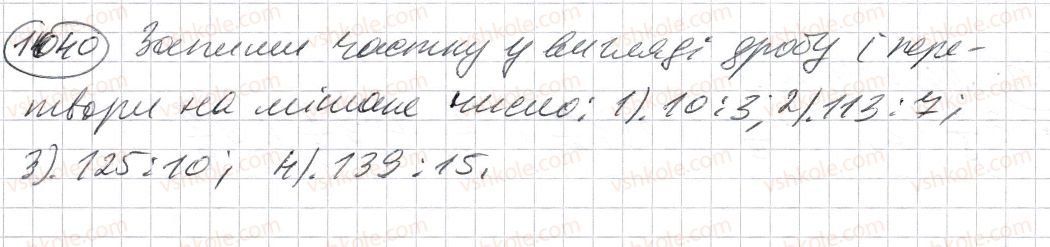 1040 Запиши частку у вигляді дробу і пере-
твори на мішане число: 1). 10:3; 2). 113:7;
3). 125:10; 4). 139:15.